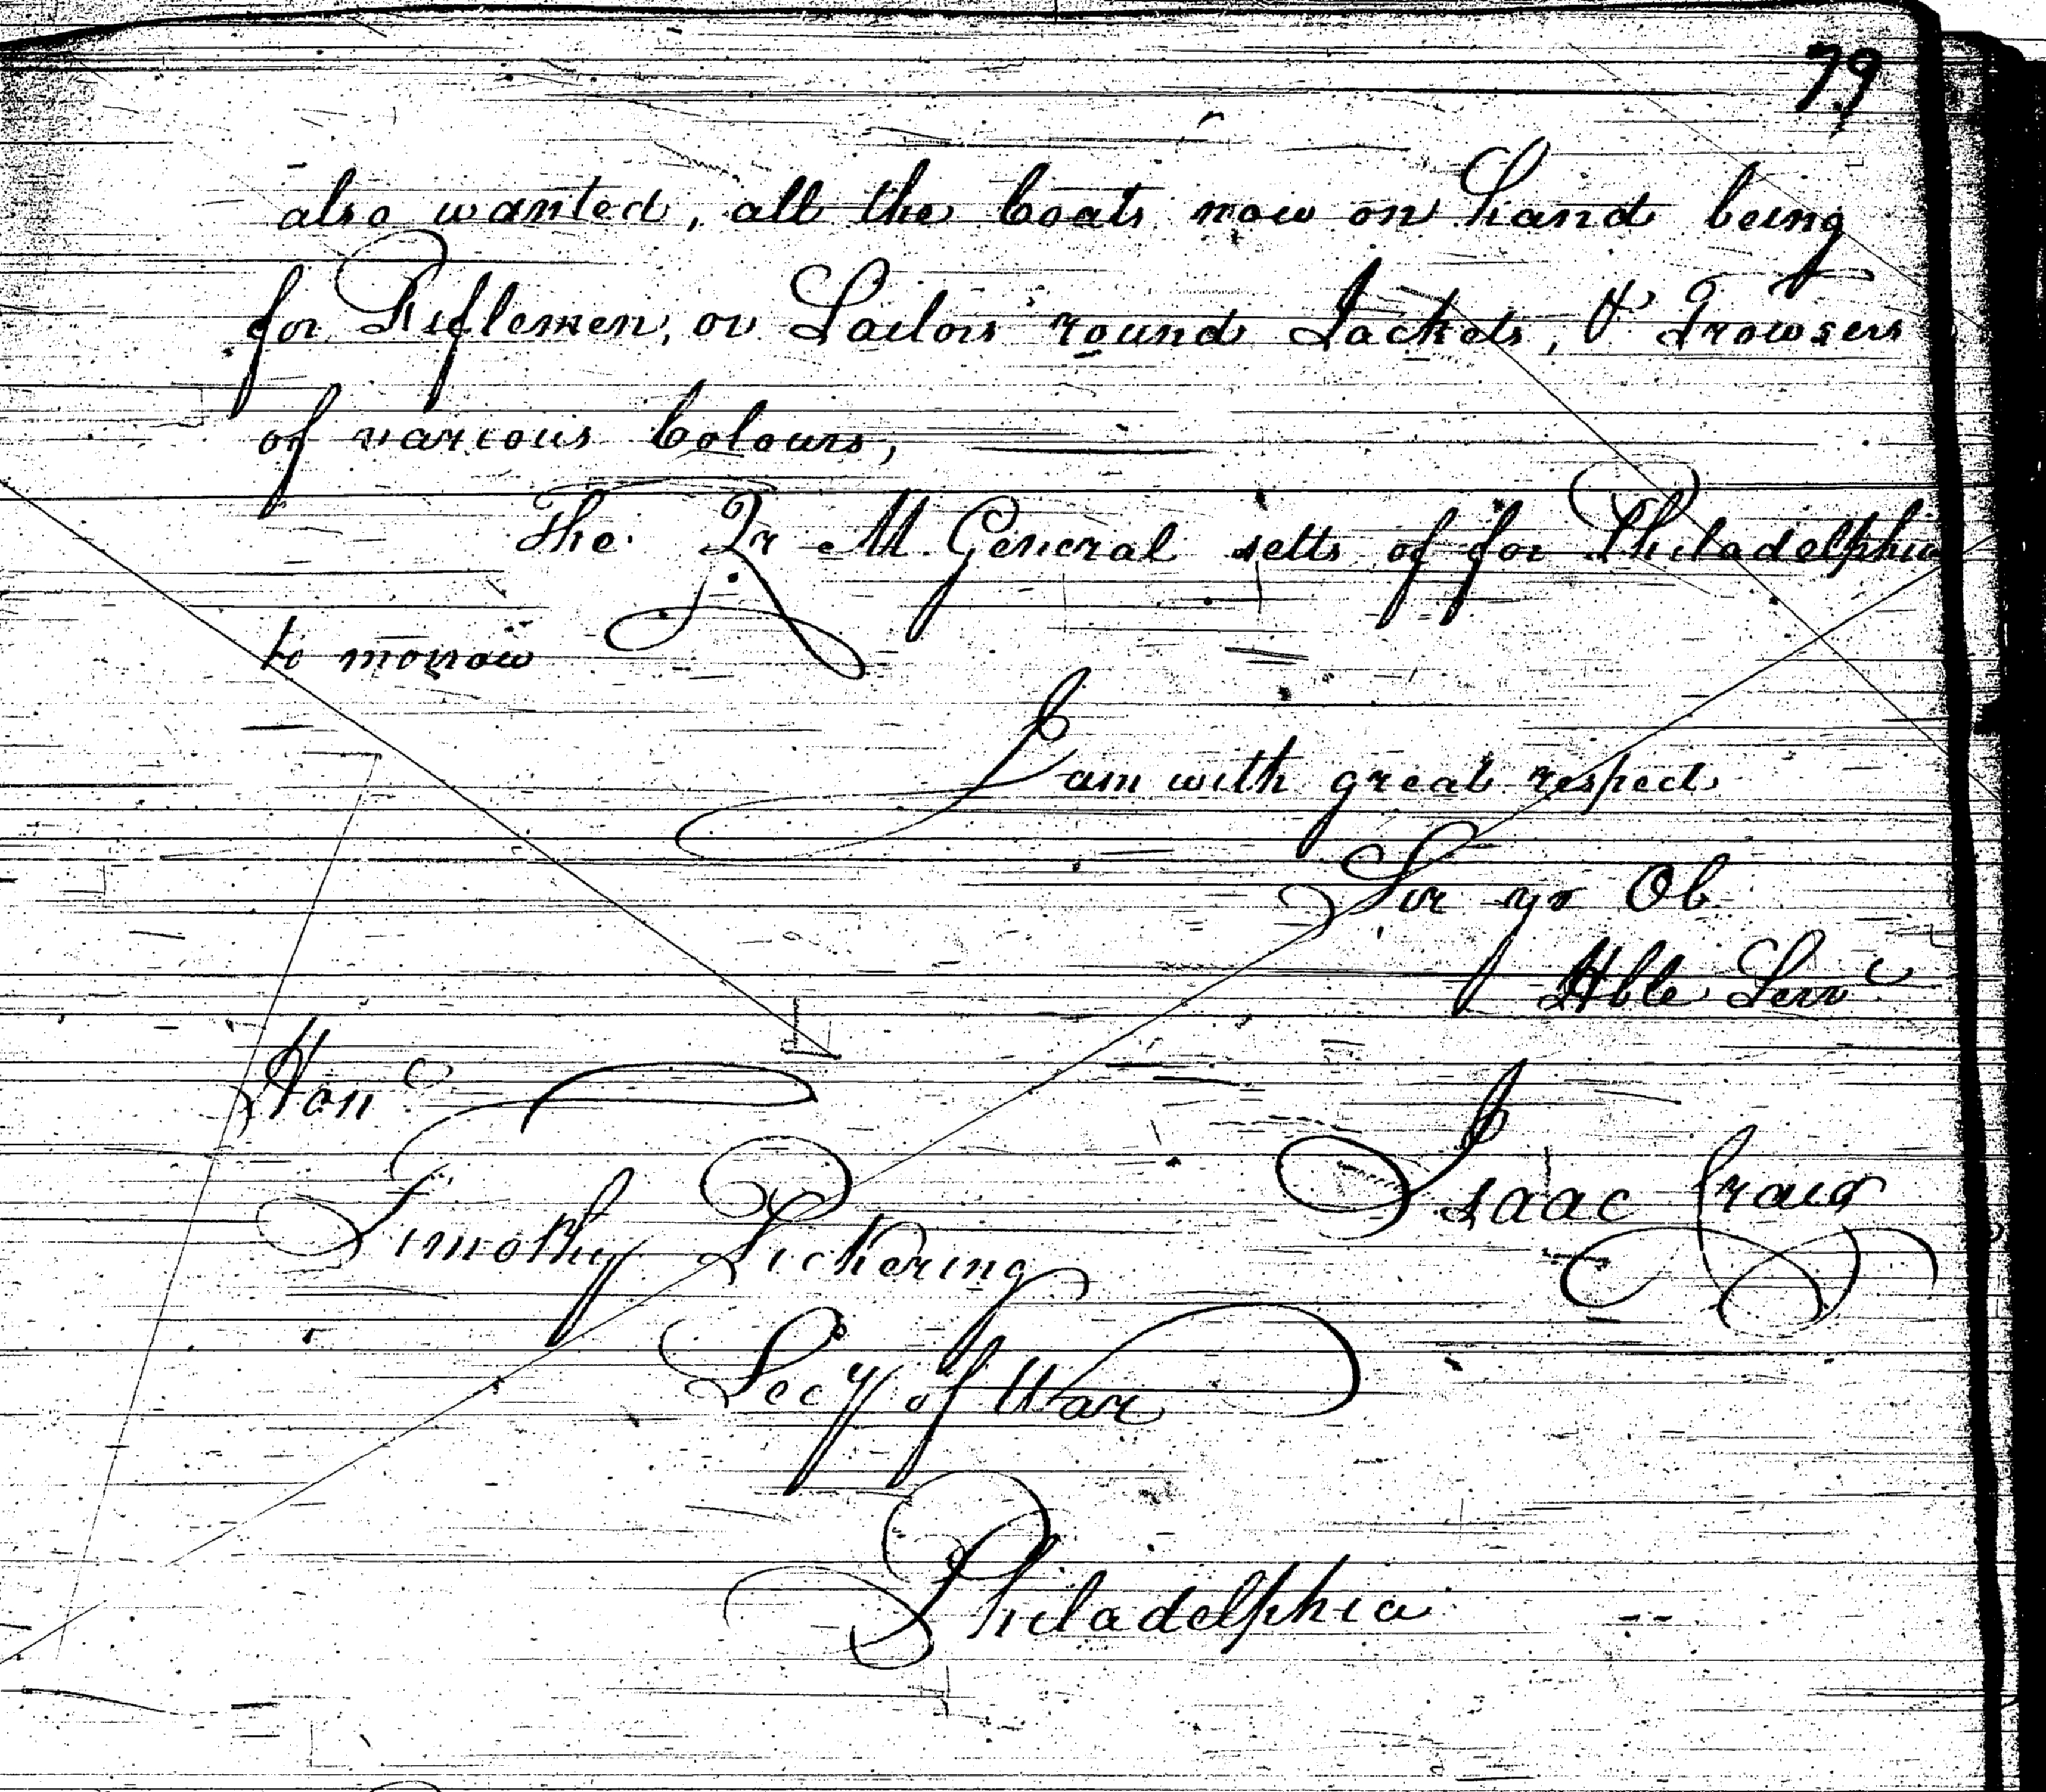 79
also wanted, all the Coats now on Hand being
for Riflemen, or Sailors round Jackets, & Trowsers
of various Colours,
The Qr M. General setts of for Philadelphia
to morrow
I am with great respect
Sir yr Ob
Hble Servt
Honble
Isaac Craig
Timothy Pickering
Secy of War
Philadelphia